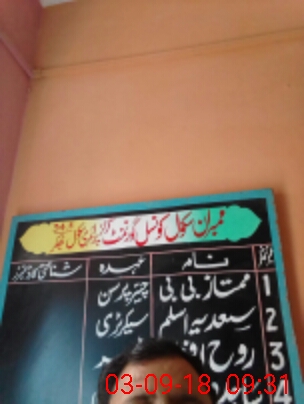 ممبران سکول کونسل گورنمنٹ گرلز
نمبر نام عہدہ شناختی کارڈ نمبر
1 ممتاز بی بی چیئرپارسن
2 سعدیہ اسلم سیکرٹری
3 روح
4
03-09-18 09:31